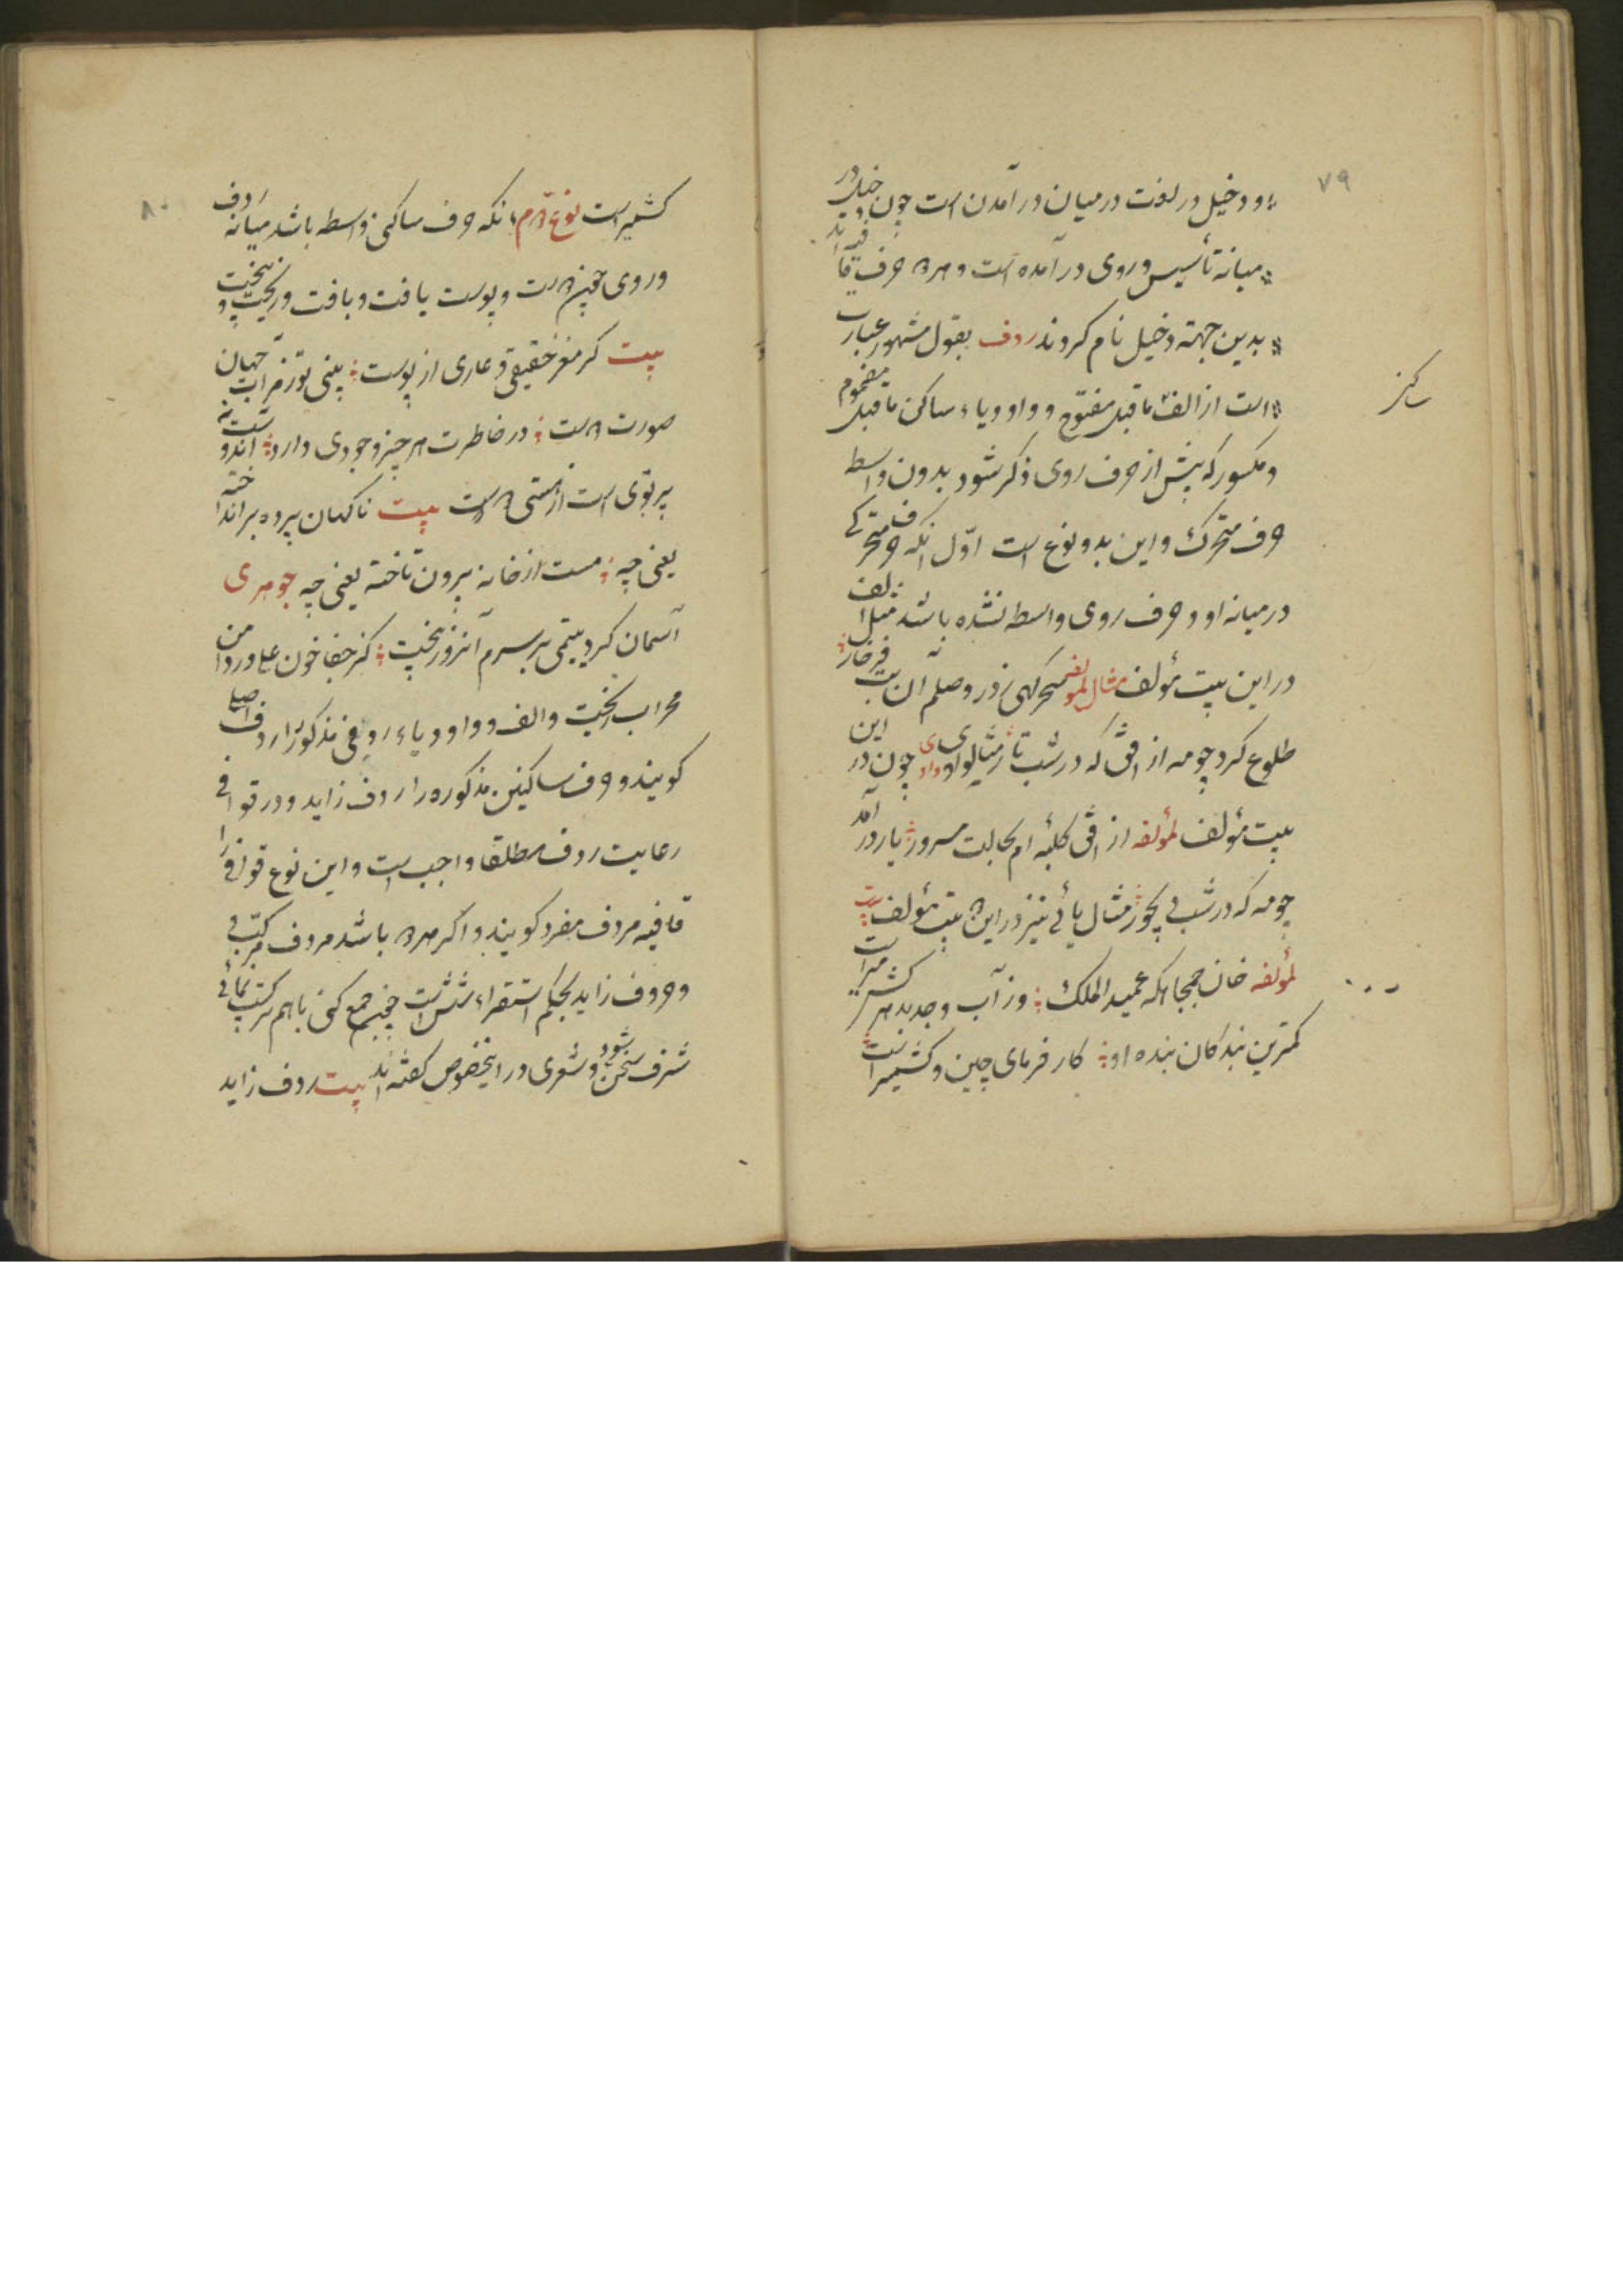 ۷۹
و دخیل در لغت در میان در آمدن است چون دخیل در
میانه تأسیس و روی در آمده است و هر دو حرف قافیه‌اند
بدین جهته دخیل نام کردند ردف بقول مشهور عبارت
است از الف ماقبل مفتوح و واو و یاء ساکن ماقبل مضموم
ساکن
و مکسور که پیش از حرف روی ذکر شود بدون واسطه
حرف متحرک و این بدو نوع است اوّل آنکه حرف متحرکی
در میانه او و حرف روی واسطه نشده باشد مثل الف
در این بیت مؤلف مثال لمؤلفه سحرکهی ز در وصلم آن بت فرخار
طلوع کرد چو مه از افق که در شب تار مثال واوی چون در این
بیت مؤلف لمؤلفه از افق کلبه‌ام بحالت مسرور یار در آمد
چو مه که در شب دیجور مثال یائی نیز در این دو بیت مؤلف است
لمؤلفه خان جمجاه که عمید الملک وز آب و جد بدهر کشتیر است
کمترین بندکان بنده او کار فرمای چین و کشمیر است
۸۰
کشمیر است نوع دوّم آنکه حرف ساکنی واسطه باشد میانه ردف
و روی چون دوست و پوست یافت و بافت و ریخت و بیخت
بیت کر مغز حقیقی و عاری از پوست بینی تو ز مرآت جهان
صورت دوست در خاطرت هر چیز وجودی دارد اندیشه
پرتوی است از هستی اوست بیت ناکهان پرده بر انداخته
یعنی چه مست از خانه برون تاخته یعنی چه جوهری
آسمان کرد یتیمی بر سرم آنروز ریخت کز جفا خون علی در دامن
محراب ریخت و الف و واو و یاء ردفی مذکور را ردف اصلی
کویند و حرف ساکنین مذکوره را ردف زاید و در قوافی
رعایت ردف مطلقا واجب است و این نوع قوافی را
قافیه مردف مفرد کویند و اکر هر دو باشد مردف مرکّب
و حروف زاید بحکم استقراء شش است چون جمع کنی باهم ترکیب نمائی
شرف سخن شود و شعری در اینخصوص کفته‌اند بیت ردف زاید